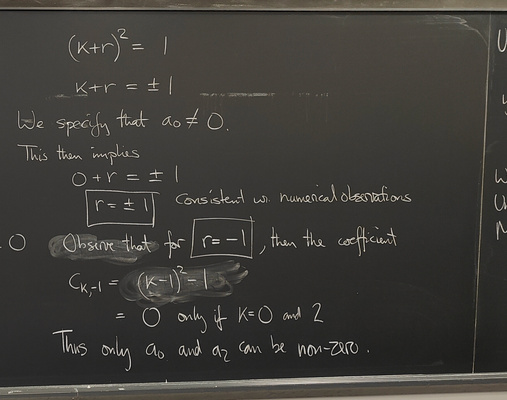 (k+r)² = 1
k+r = ±1
We specify that a₀ ≠ 0.
This then implies
0+r = ±1
r = ±1 consistent w. numerical observations
0 Observe that for r = -1, then the coefficient
C_{k,-1} = (k-1)² - 1
= 0 only if k=0 and 2
Thus only a₀ and a₂ can be non-zero.